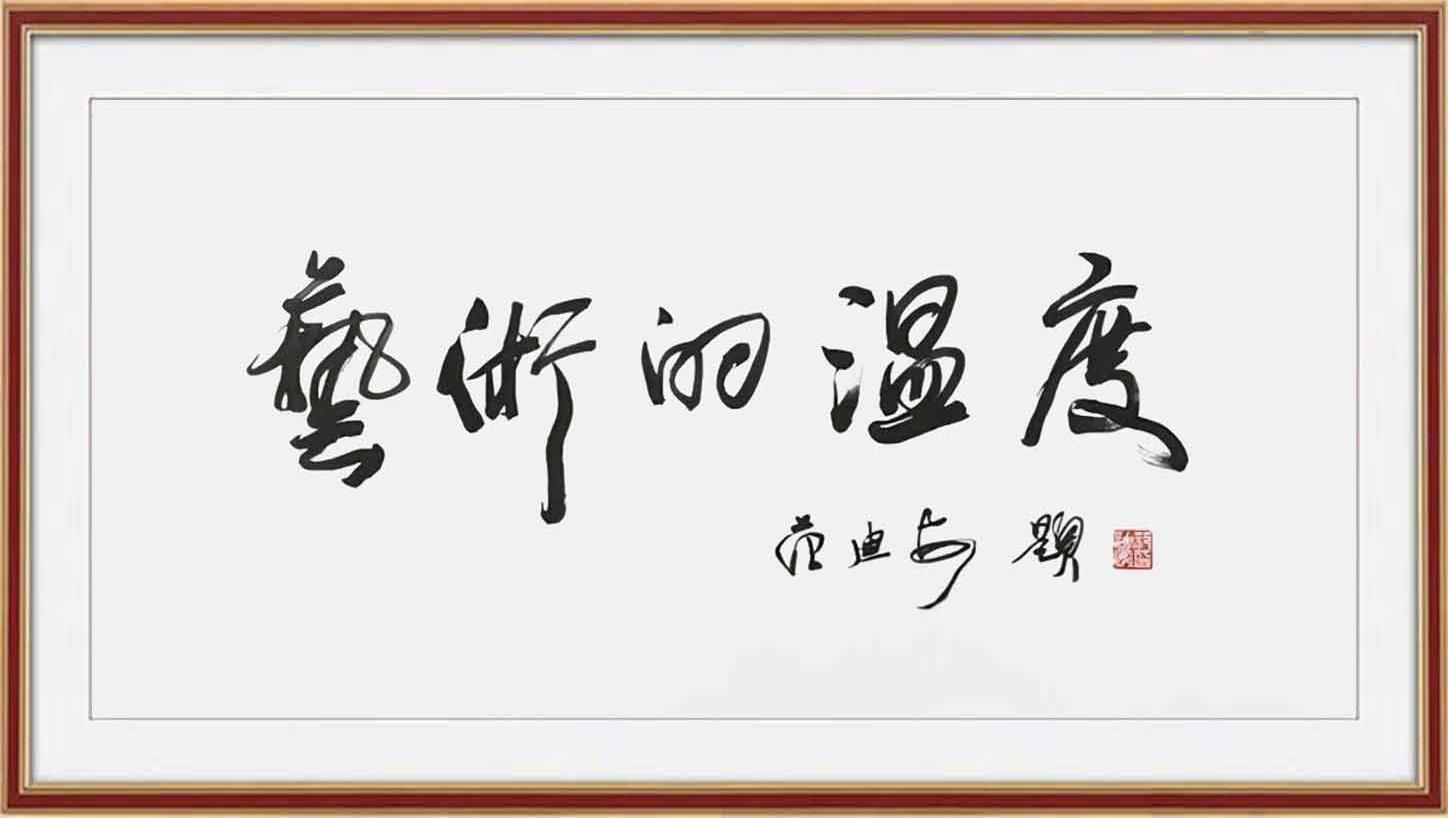 藝術的温度
范迪安 題